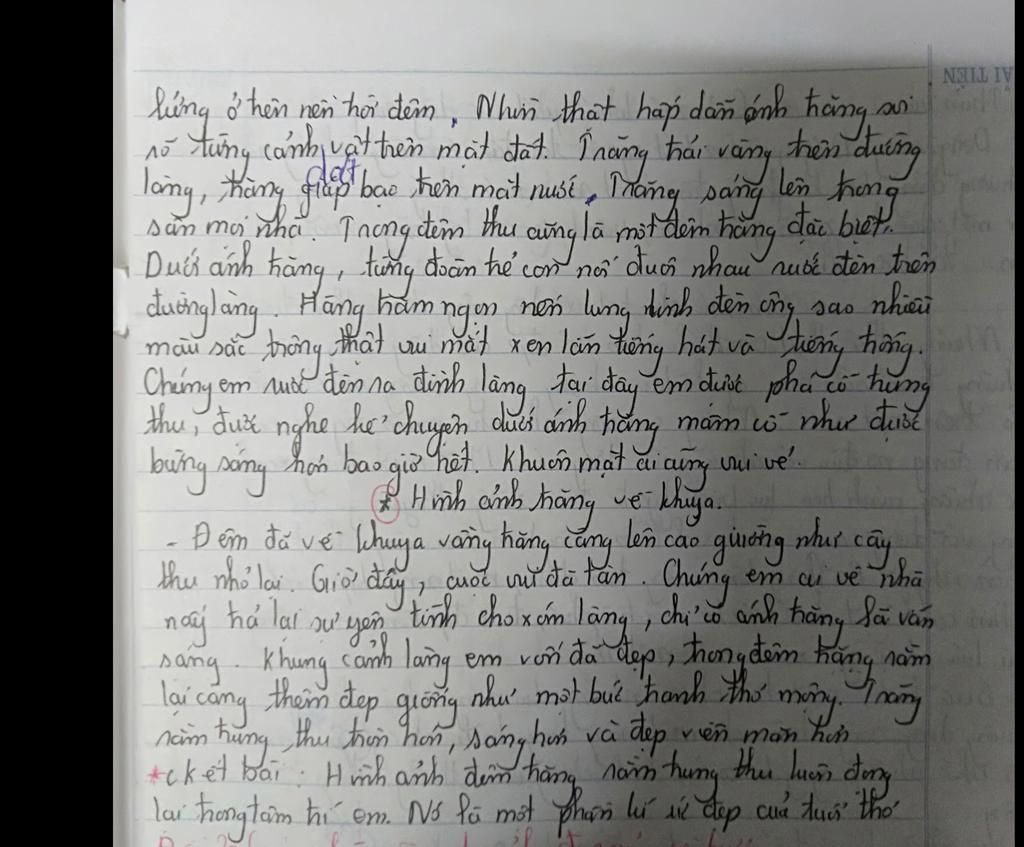 lửng ở trên nền trời đêm, Nhìn thật hấp dẫn ánh trăng soi
rõ từng cảnh vật trên mặt đất. Trăng trải vàng trên đường
làng, trăng giáp dát bạc trên mặt nước. Trăng sáng lên trong
sân mọi nhà. Trong đêm thu cũng là một đêm trăng đặc biệt.
Dưới ánh trăng, từng đoàn trẻ con nối đuôi nhau rước đèn trên
đường làng. Hàng trăm ngọn nến lung linh đèn ông sao nhiều
màu sắc trông thật vui mắt xen lẫn tiếng hát và tiếng trống.
Chúng em rước đèn ra đình làng tại đây em được phá cỗ trung
thu, được nghe kể chuyện dưới ánh trăng mâm cỗ như được
bừng sáng hơn bao giờ hết. Khuôn mặt ai cũng vui vẻ.
* Hình ảnh trăng về khuya.
- Đêm đã về khuya vầng trăng càng lên cao giường như cây
thu nhỏ lại. Giờ đây, cuộc vui đã tàn. Chúng em ai về nhà
nấy trả lại sự yên tĩnh cho xóm làng, chỉ có ánh trăng là vẫn
sáng. Khung cảnh làng em vốn đã đẹp, trong đêm trăng rằm
lại càng thêm đẹp giống như một bức tranh thơ mộng. Trăng
rằm trung thu tròn hơn, sáng hơn và đẹp viên mãn hơn
*c kết bài: Hình ảnh đêm trăng rằm trung thu luôn đọng
lại trong tâm trí em. Nó là một phần kí ức đẹp của tuổi thơ